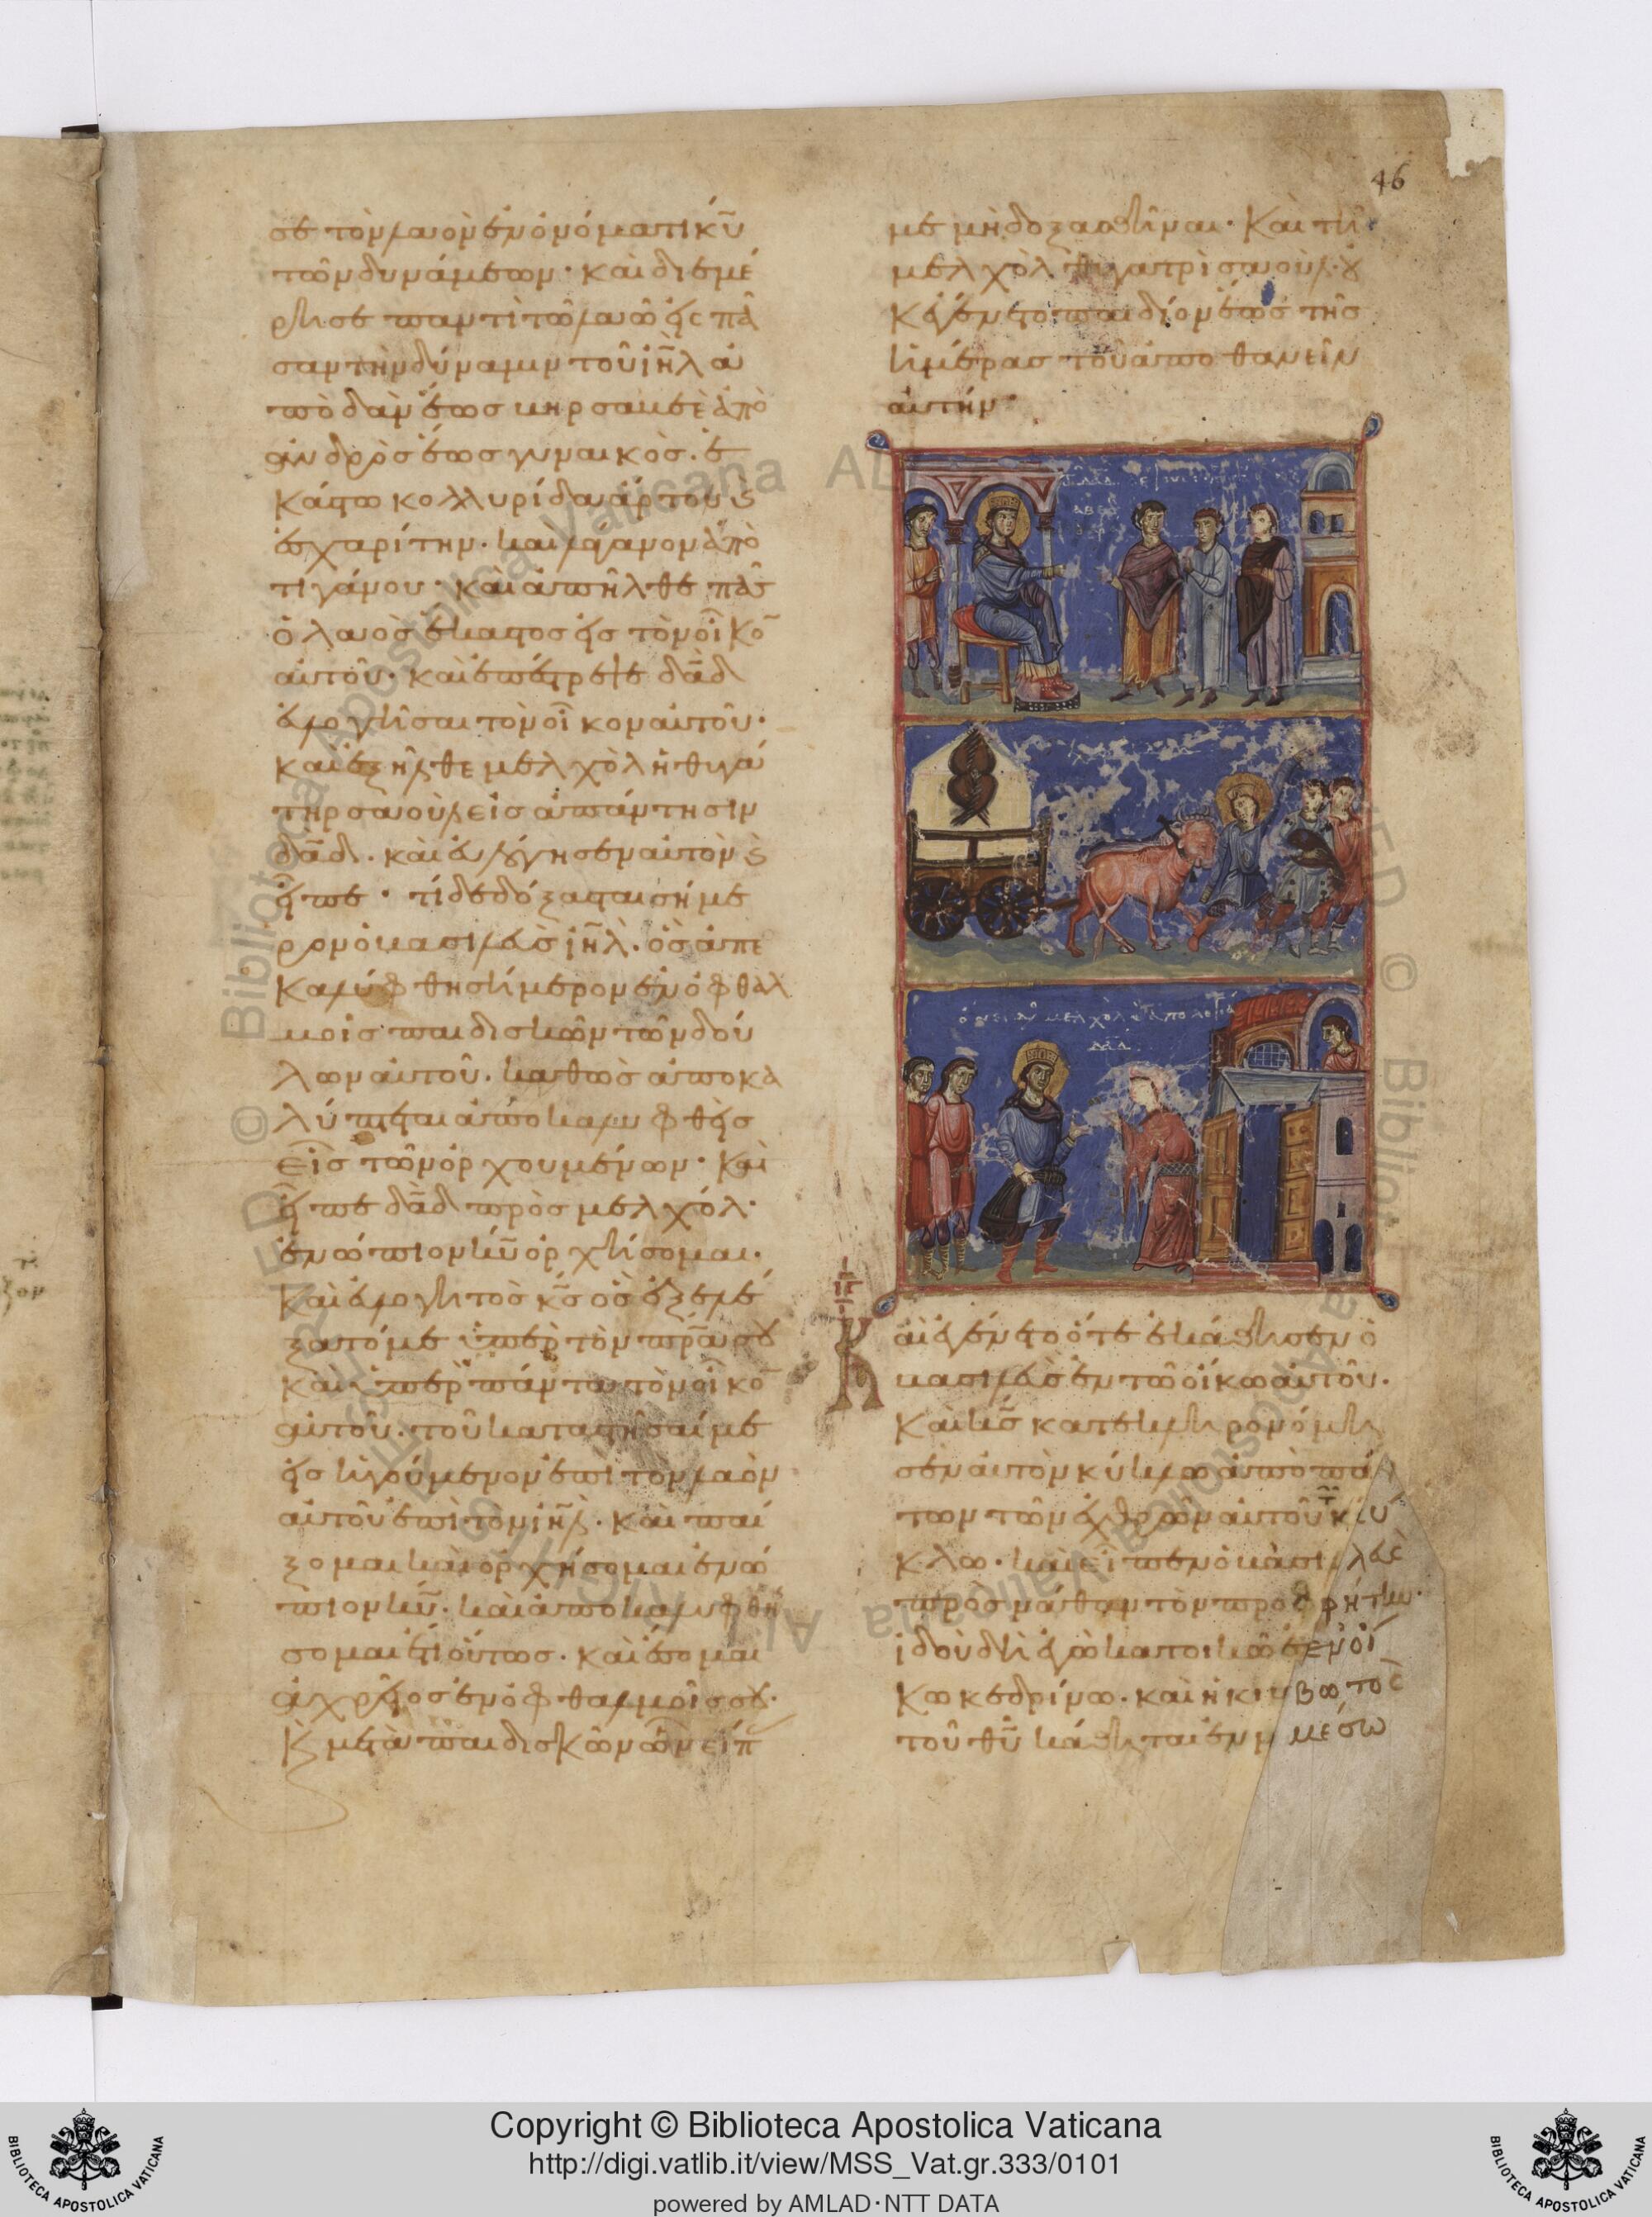 46
σε τὸν λαὸν ἐν ὀνόματι κ̅υ̅
τῶν δυνάμεων· καὶ διεμέ
ρισε παντὶ τῶ λαῶ εἰς πᾶ
σαν τὴν δύναμιν τοῦ ι̅η̅λ̅ ἀ
πὸ δὰν ἕως βηρσαβεὲ ἀπὸ
ἀνδρὸς ἕως γυναικὸς· ἑ
κάστω κολλυρίδα ἄρτου ϗ
ἐσχαρίτην· καὶ λάγανον ἀπὸ
τιγάνου· καὶ ἀπῆλθε πᾶς
ὁ λαὸς ἕκαστος εἰς τὸν οἶκο̅
αὐτοῦ· καὶ ἐπέστρεψε δ̅α̅δ̅
εὐλογῆσαι τὸν οἶκον αὐτοῦ·
καὶ ἐξῆλθε μελχὸλ ἡ θυγά
τηρ σαοὺλ εἰς ἀπάντησιν
δ̅α̅δ̅· καὶ εὐλόγησεν αὐτὸν ϗ
εἶπε· τί δεδόξασται σήμε
ρον ὁ βασιλεὺς ι̅η̅λ̅· ὃς ἀπε
καλύφθη σήμερον ἐν ὀφθαλ
μοῖς παιδισκῶν τῶν δού
λων αὐτοῦ· καθὼς ἀποκα
λύπτεται ἀποκαλυφθεὶς
εἷς τῶν ὀρχουμένων· καὶ
εἶπε δ̅α̅δ̅ πρὸς μελχόλ·
ἐνώπιον κ̅υ̅ ὀρχήσομαι·
καὶ εὐλογητὸς κ̅ς̅ ὃς ἐξελέ
ξατό με ὑπὲρ τὸν π̅ρ̅α̅ σου
καὶ ὑπὲρ πάντα τὸν οἶκο̅
αὐτοῦ· τοῦ καταστῆσαί με
εἰς ἡγούμενον ἐπὶ τὸν λαὸν
αὐτοῦ ἐπὶ τὸν ι̅η̅λ̅· καὶ παί
ξομαι καὶ ὀρχήσομαι ἐνώ
πιον κ̅υ̅· καὶ ἀποκαλυφθή
σομαι ἔτι οὕτως· καὶ ἔσομαι
ἀχρεῖος ἐν ὀφθαλμοῖς σου·
ϗ μετὰ παιδισκῶν ὧν εἶπ
με μὴ δοξασθῆναι· Καὶ τῆ
μελχὸλ θυγατρὶ σαοὺλ οὐ
κ ἐγένετο παιδίον ἕως τῆς
ἡμέρας τοῦ ἀποθανεῖν
αὐτήν·
ὀνειδ μελχὸλ ἀπολογία
δ̅α̅δ̅
Καὶ ἐγένετο ὅτε ἐκάθησεν ὁ
βασιλεὺς ἐν τῶ οἴκω αὐτοῦ·
καὶ κ̅ς̅ κατεκληρονόμη
σεν αὐτὸν κύκλω ἀπὸ πά
των τῶν ἐχθρῶν αὐτοῦ τ κύ
κλω· καὶ εἶπεν ὁ βασιλεὺ
πρὸς νάθαν τὸν προφήτην·
ἰδοὺ δὴ ἐγὼ κατοικῶ ἐν οἴ
κω κεδρίνω· καὶ ἡ κιβωτὸς
τοῦ θ̅υ̅ κάθηται ἐν μέσω
Copyright © Biblioteca Apostolica Vaticana
http://digi.vatlib.it/view/MSS_Vat.gr.333/0101
powered by AMLAD·NTT DATA
BIBLIOTECA APOSTOLICA VATICANA
BIBLIOTECA APOSTOLICA VATICANA